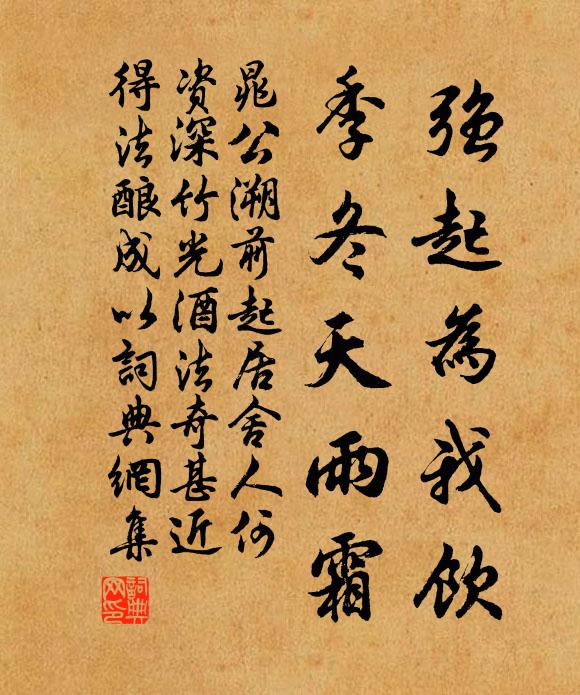 强起為我飲
季冬天雨霜
晁公溯前起居舍人何
资深竹光酒法奇甚近
得法酿成以詞典網集
詞典網印